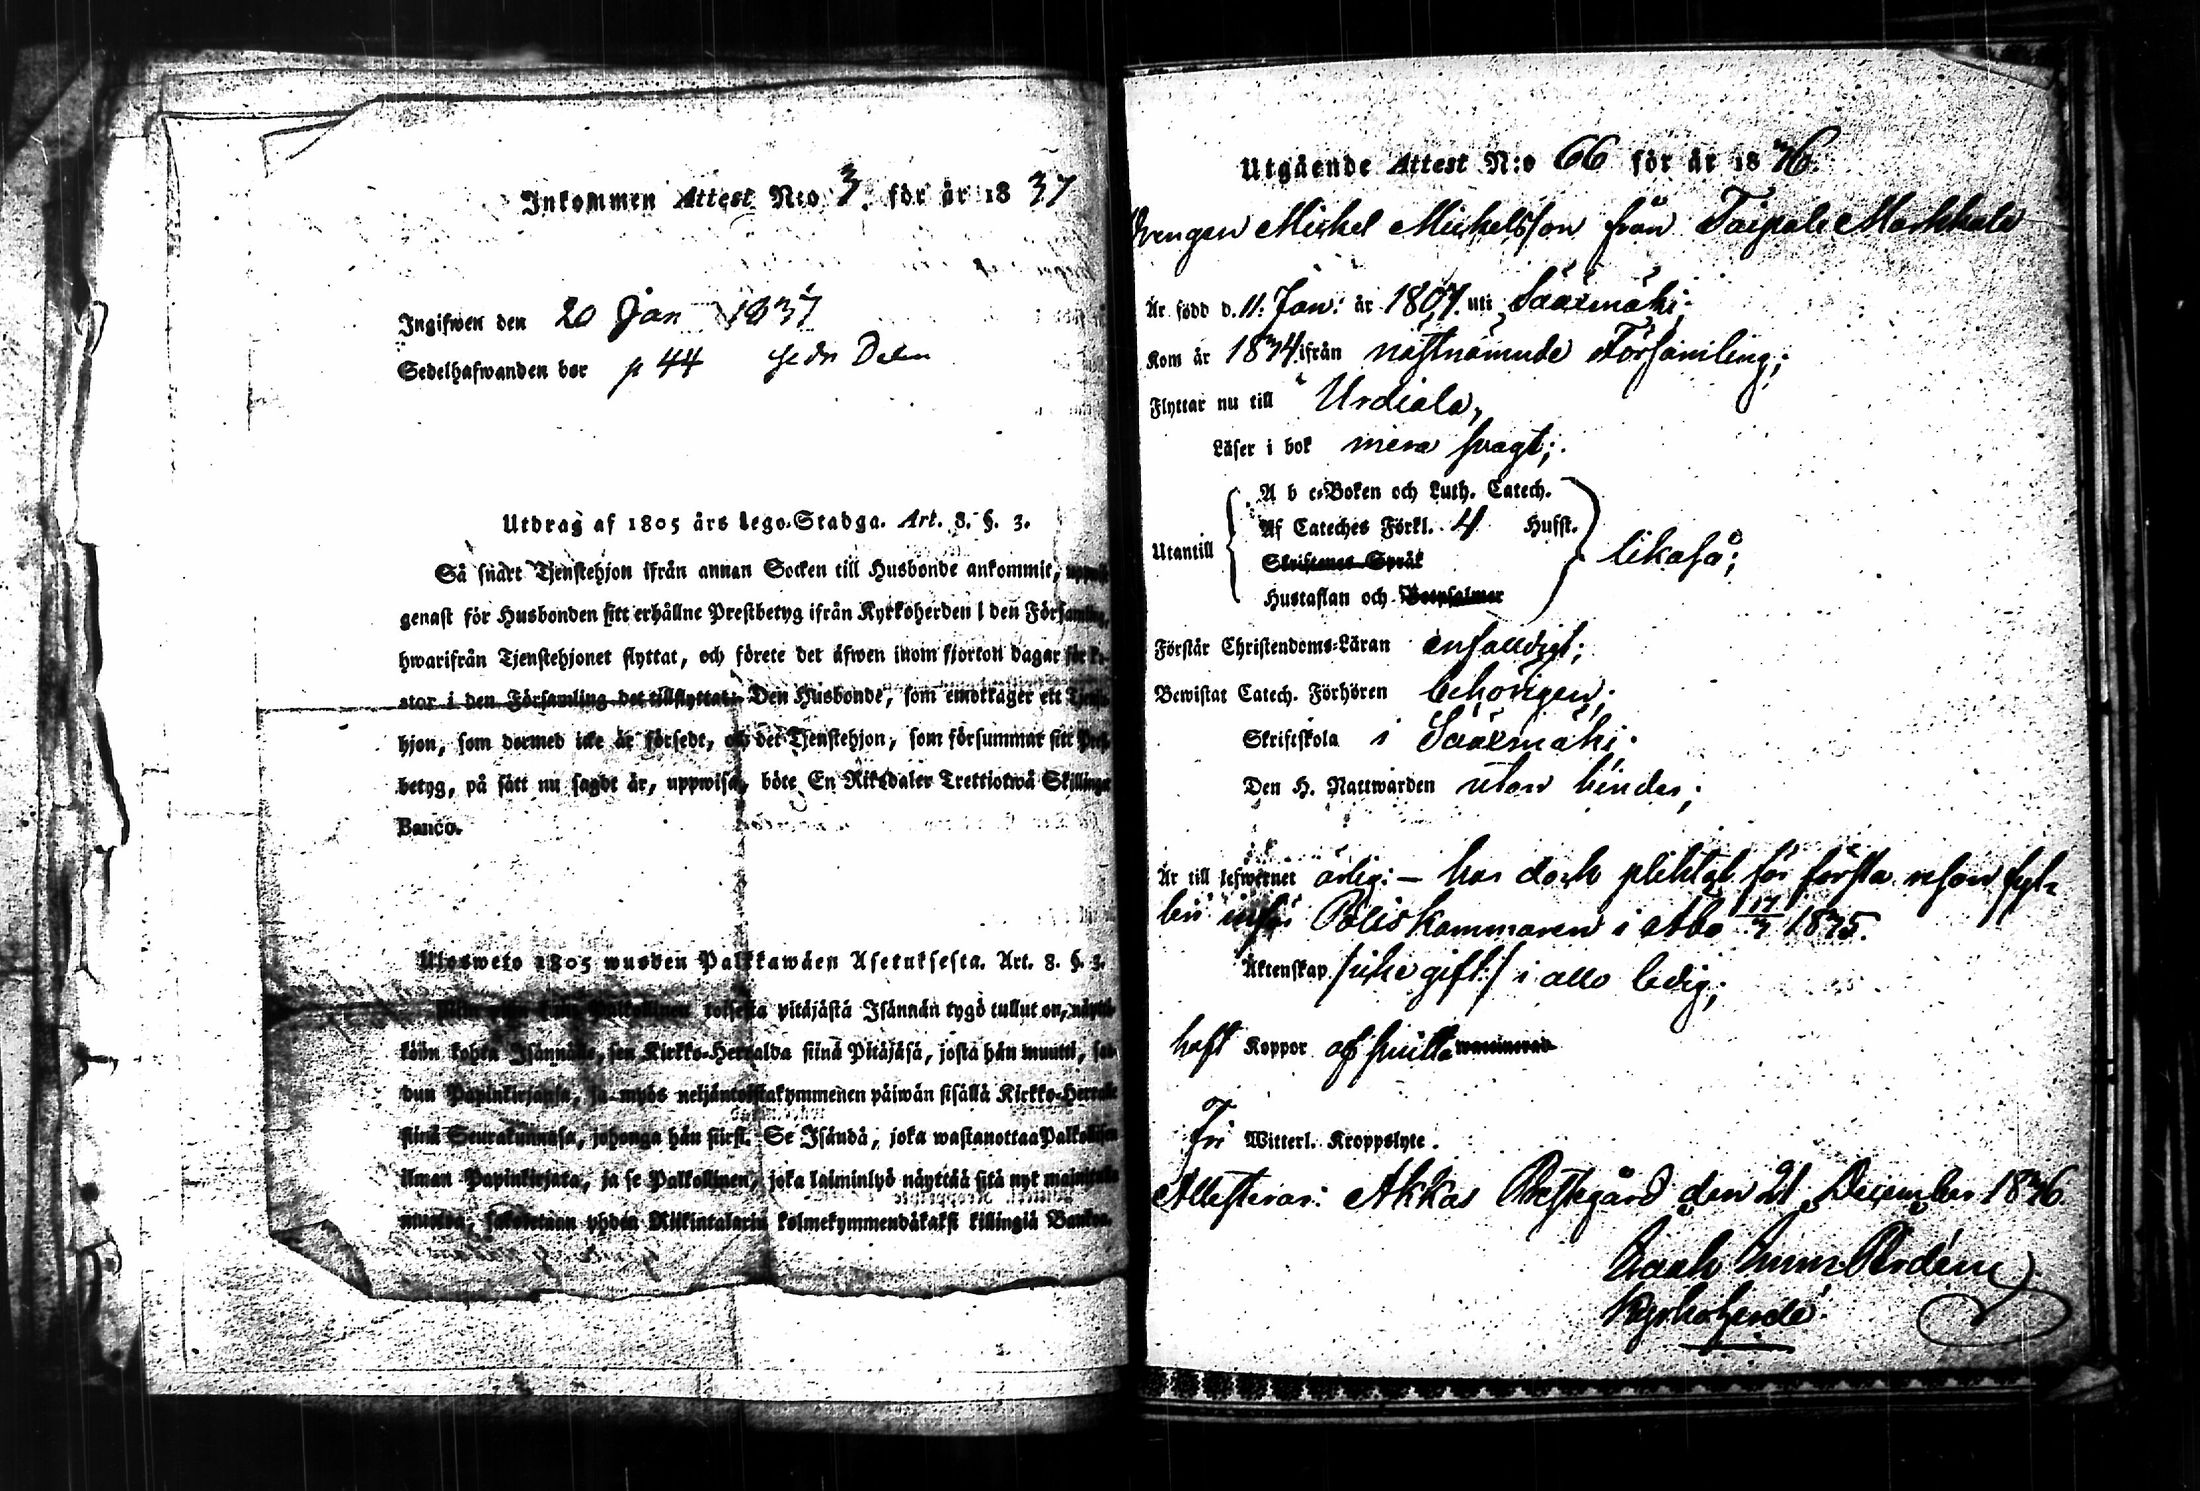 Inkommen Attest N:o 3. för år 1837
Ingifwen den 20 Jan 1837
Sedelhafwanden bor p 44
Utdrag af 1805 års Lego-Stadga. Art. 8. §. 3.
Så snart Tjenstehjon ifrån annan Socken till Husbonde ankommit,
genast för Husbonden sitt erhållne Prestbetyg ifrån Kyrkoherden i den Församling,
hwarifrån Tjenstehjonet flyttat, och förete det äfwen inom fjorton dagar för
stor i den Församling det tillflyttat. Den Husbonde, som emottager ett Tjenste-
hjon, som dermed icke är försedt, och det Tjenstehjon, som försummar sitt Prest-
betyg, på sätt nu sagdt är, uppwisa, böte En Riksdaler Trettiotwå Skillingar
Banco.
Ulosweto 1805 wuoden Palkkawäen Asetuksesta. Art. 8. §. 3.
toisesta pitäjästä Isännän tygö tullut on,
kohta Isännälle, sen Kirkko-Herralda siinä Pitäjäsä, josta hän muutti,
dun Papinkirjansa, ja myös neljäntoistakymmenen päiwän sisällä Kirkko-Herralle
siinä Seurakunnasa, johonga hän siirsi. Se Isändä, joka wastanottaa Palkollisen
ilman Papinkirjata, ja se Palkollinen, joka laiminlyö näyttää sitä nyt mainitulla
muotoa, yhden Riikintalarin kolmekymmendäkaksi killingiä Bankoa.
Utgående Attest N:o 66 för år 1836.
Drengen Michel Michelsson från Taipale Markkala
Är född d. 11. Jan: år 1807. uti Sääxmäki;
Kom år 1834 ifrån nästnämnde Församling;
Flyttar nu till Urdiala,
Läser i bok mera svagt;
A b c-Boken och Luth. Catech.
Af Cateches Förkl. 4 Hufst.
Utantill likaså;
Skriftenes Språk
Hustaflan och Botpsalmer
Förstår Christendoms-Läran enfalldigt;
Bewistat Catech. Förhören behörigen;
Skriftskola i Sääxmäki;
Den H. Nattwarden utan hinder;
Är till lefwernet ärlig: — har dock pliktat för första resan fyl-
leri inför Poliskammaren i Åbo 1835.
Äktenskap /icke gift:/ i allo ledig;
haft Koppor af smitta waccinerad
Fri Witterl. Kroppslyte.
Attesterar: Akkas Prestegård den 21 December 1836.
Kyrkoherde.